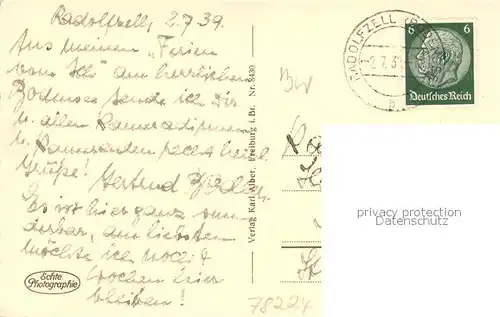 Radolfzell, 2.7.39.
Aus meinen "Ferien
vom Ich" am herrlichen
Bodensee sende ich Dir
u. allen Kameradinnen
u. Kameraden recht viel
Grüße!
Gertrud
Es ist hier ganz wun
derbar, am liebsten
möchte ich noch 4
Wochen hier
bleiben!
Echte
Photographie
Verlag Karl Alber, Freiburg i. Br. Nr. 8430
RADOLFZELL
2.7.3
b
6 6
Deutsches Reich
privacy protection
Datenschutz
78224